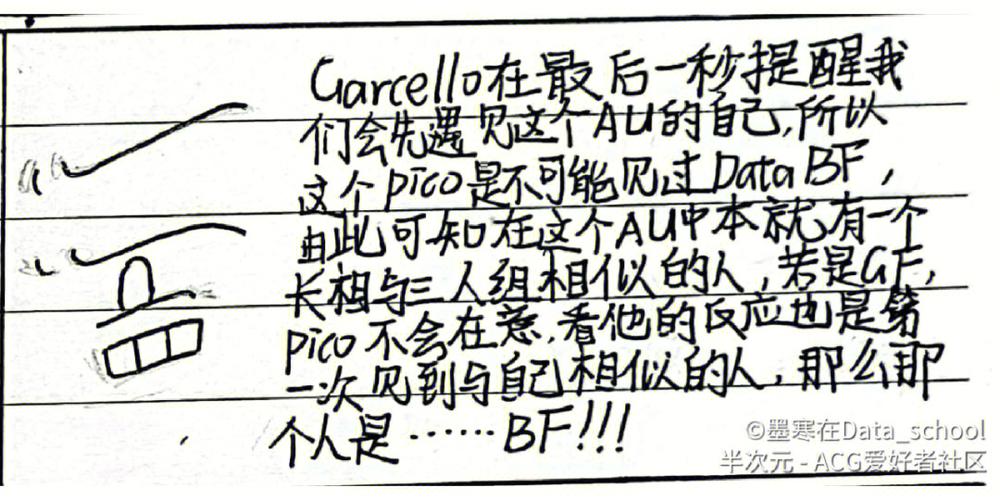 Garcello在最后一秒提醒我
们会先遇见这个AU的自己,所以
这个pico是不可能见过Data BF,
由此可知在这个AU中本就有一个
长相与三人组相似的人,若是GF,
pico不会在意,看他的反应也是第
一次见到与自己相似的人,那么那
个人是……BF!!!
©墨寒在Data_school
半次元 - ACG爱好者社区